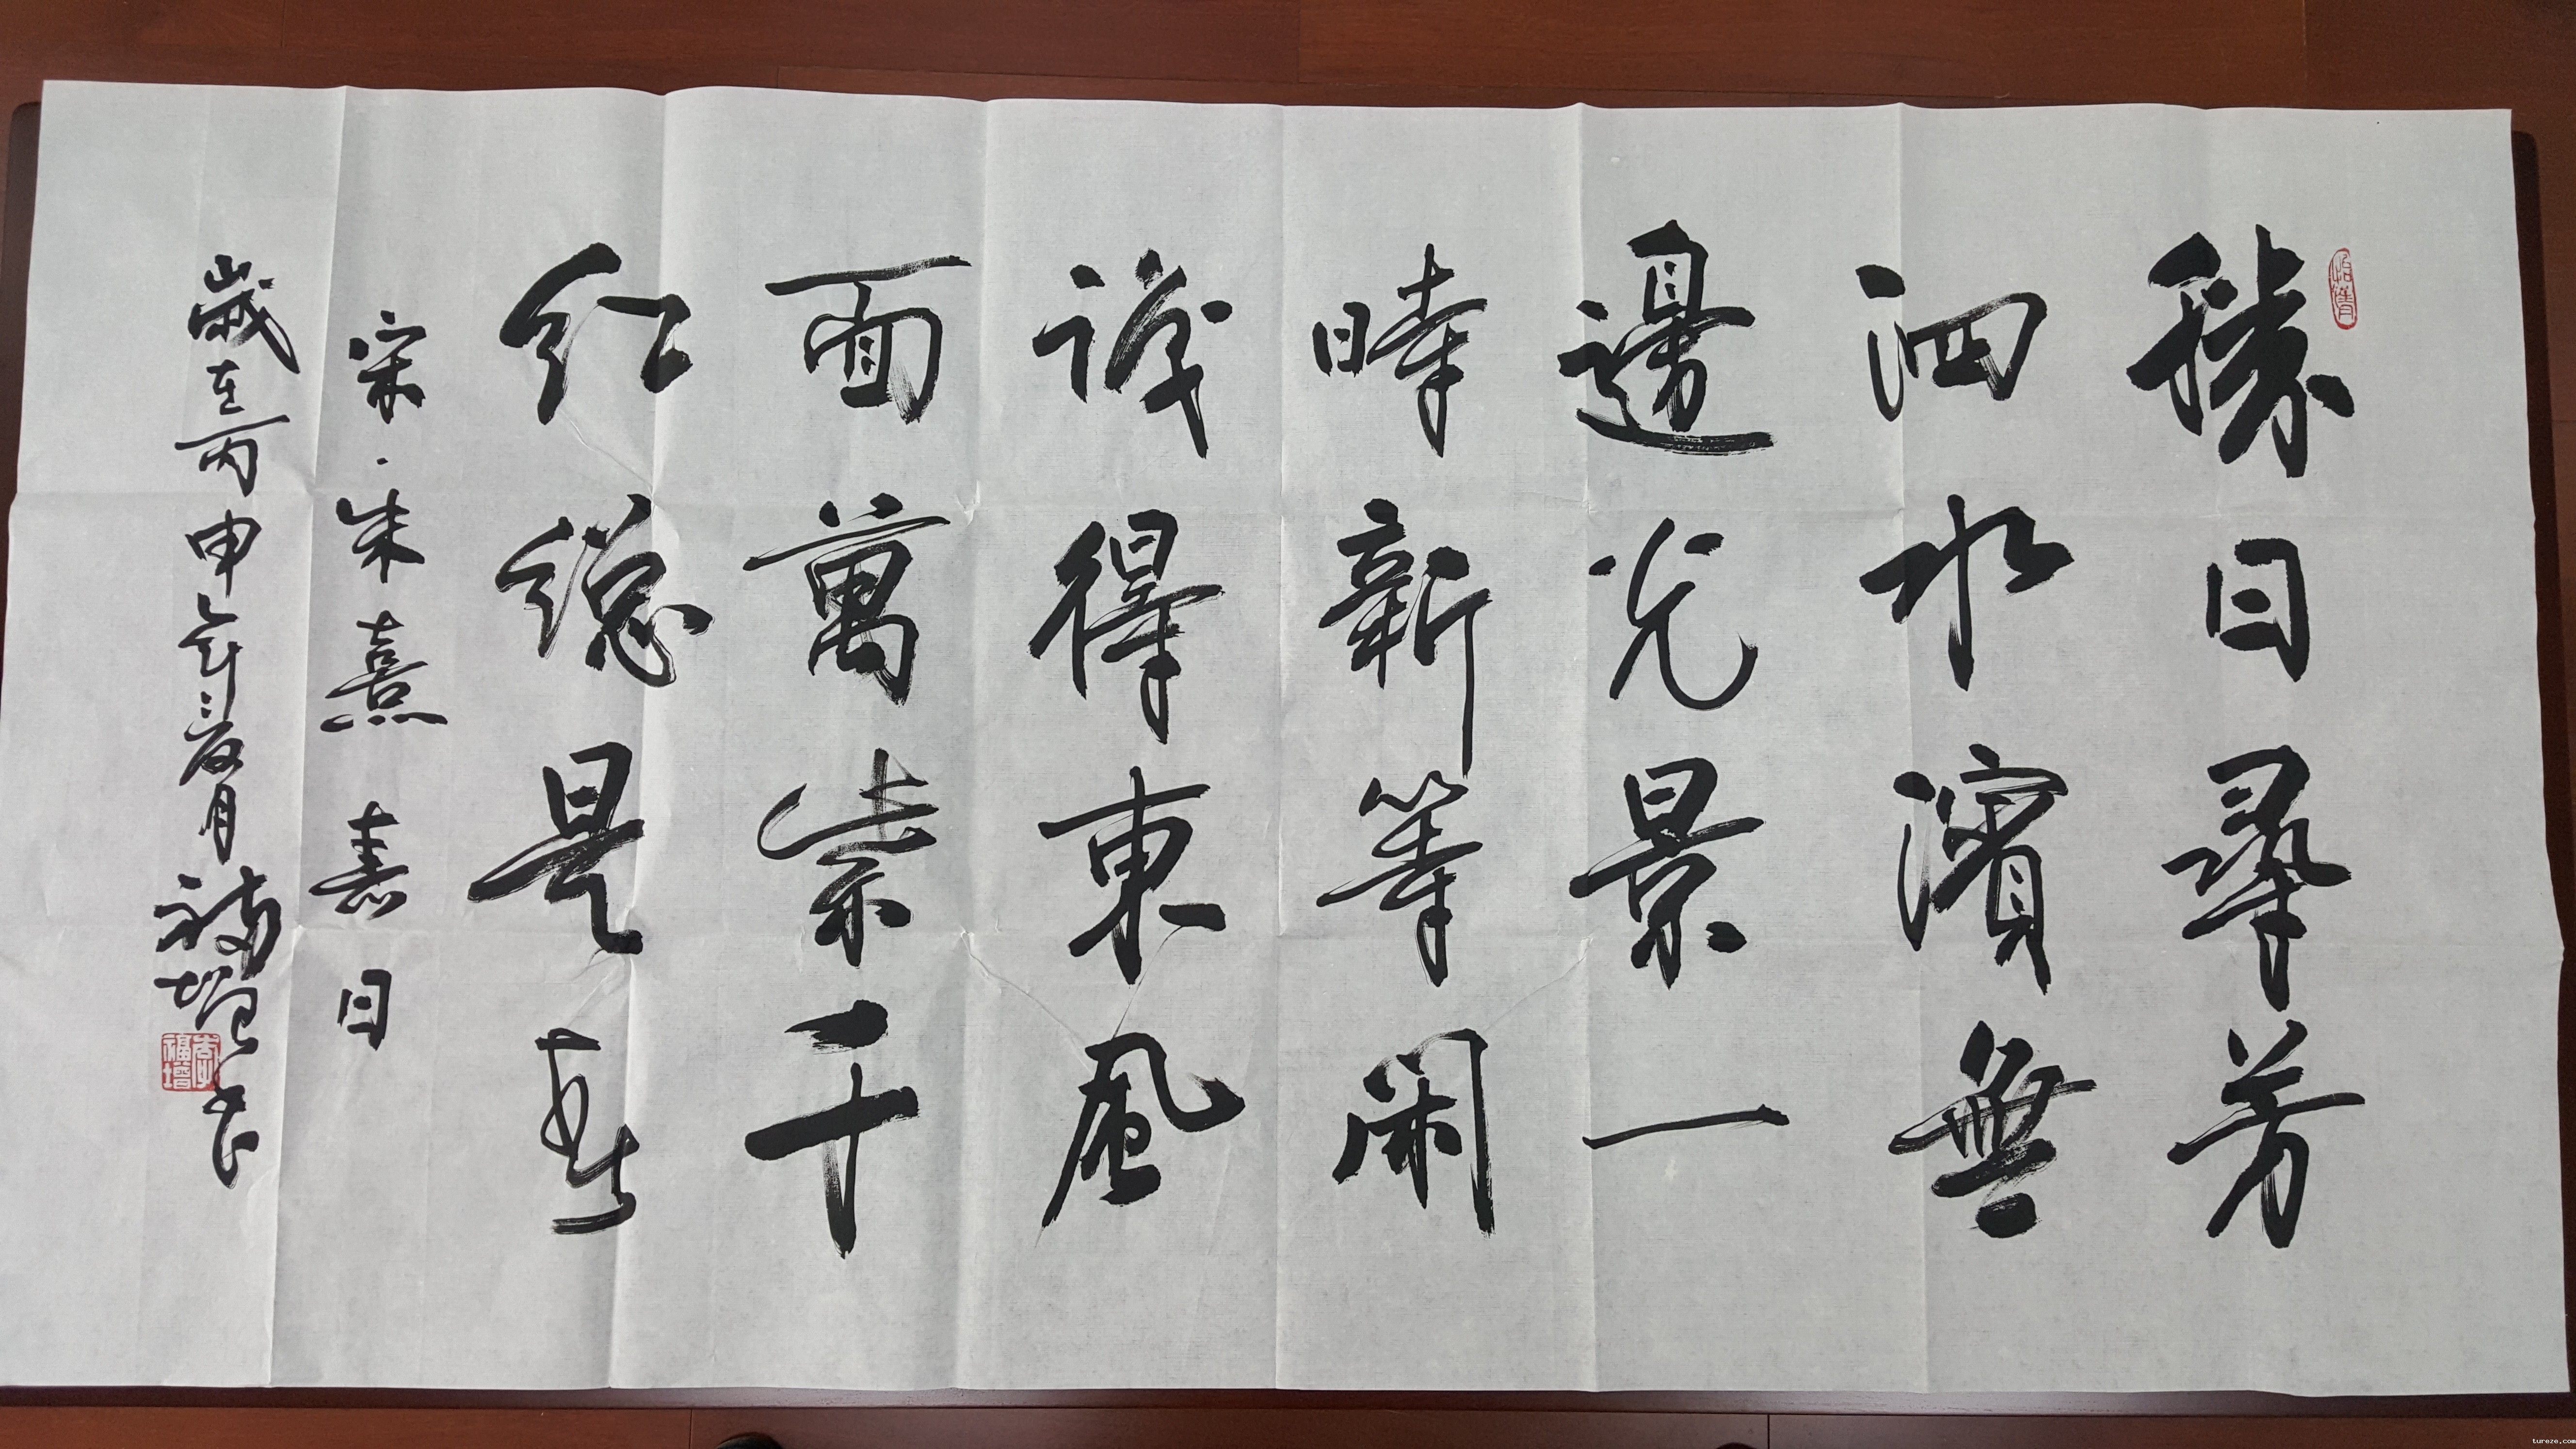 勝日尋芳
泗水濱無
邊光景一
時新等閑
識得東風
面萬紫千
紅總是春
宋·朱熹 日
歲在丙申年夏月福增書
李福增
tureze.com